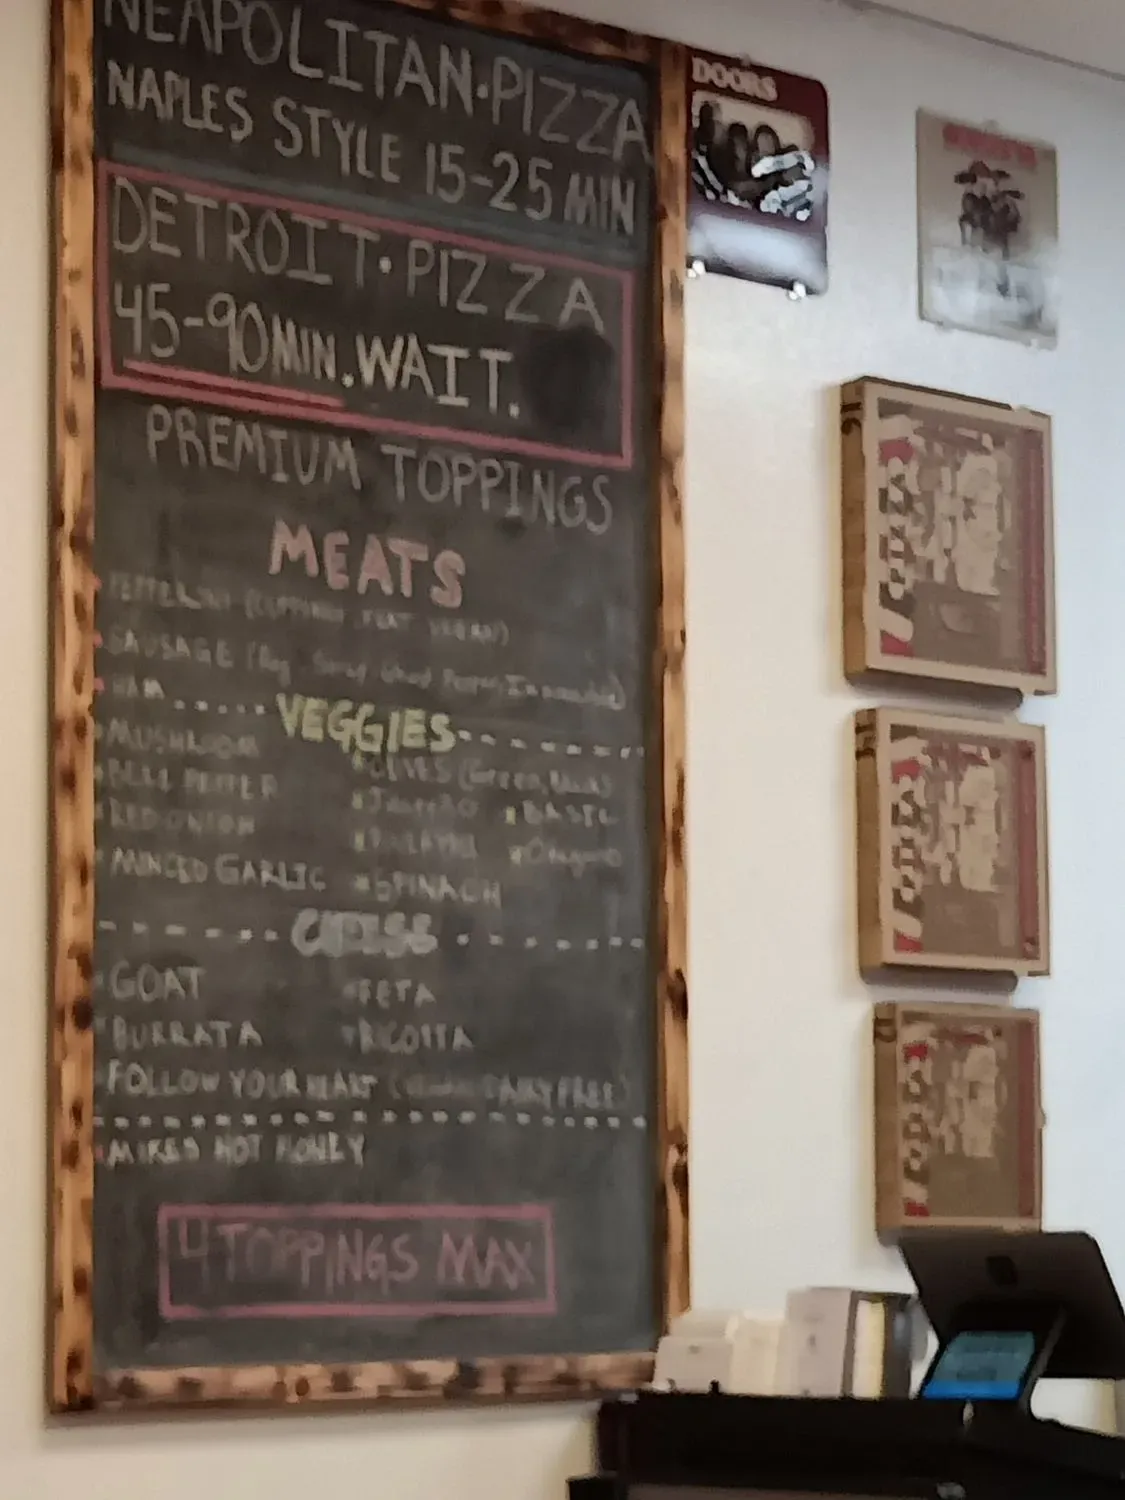 NEAPOLITAN·PIZZA
NAPLES STYLE 15-25 MIN
DETROIT·PIZZA
45-90MIN. WAIT.
PREMIUM TOPPINGS
MEATS
SAUSAGE
HAM
VEGGIES
MUSHROOM
OLVES (Green, Black)
BELL PEPPER
BASIL
RED ONION
Oregano
MINCED GARLIC
SPINACH
GOAT
FETA
BURRATA
RICOTTA
FOLLOW YOUR HEART DAIRY FREE)
MIKES HOT HONEY
4 TOPPINGS MAX
DOORS